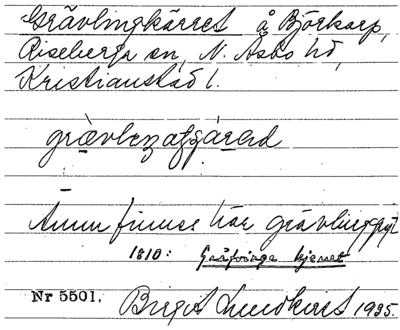 Grävlingkärret å Björkarp,
Riseberga sn, N. Åsbo hd,
Kristianstad l.
Ännu finnes här grävlinggryt
1810: Gräfvinge kjerret
Nr 5501. Birgit Lundkvist 1935.